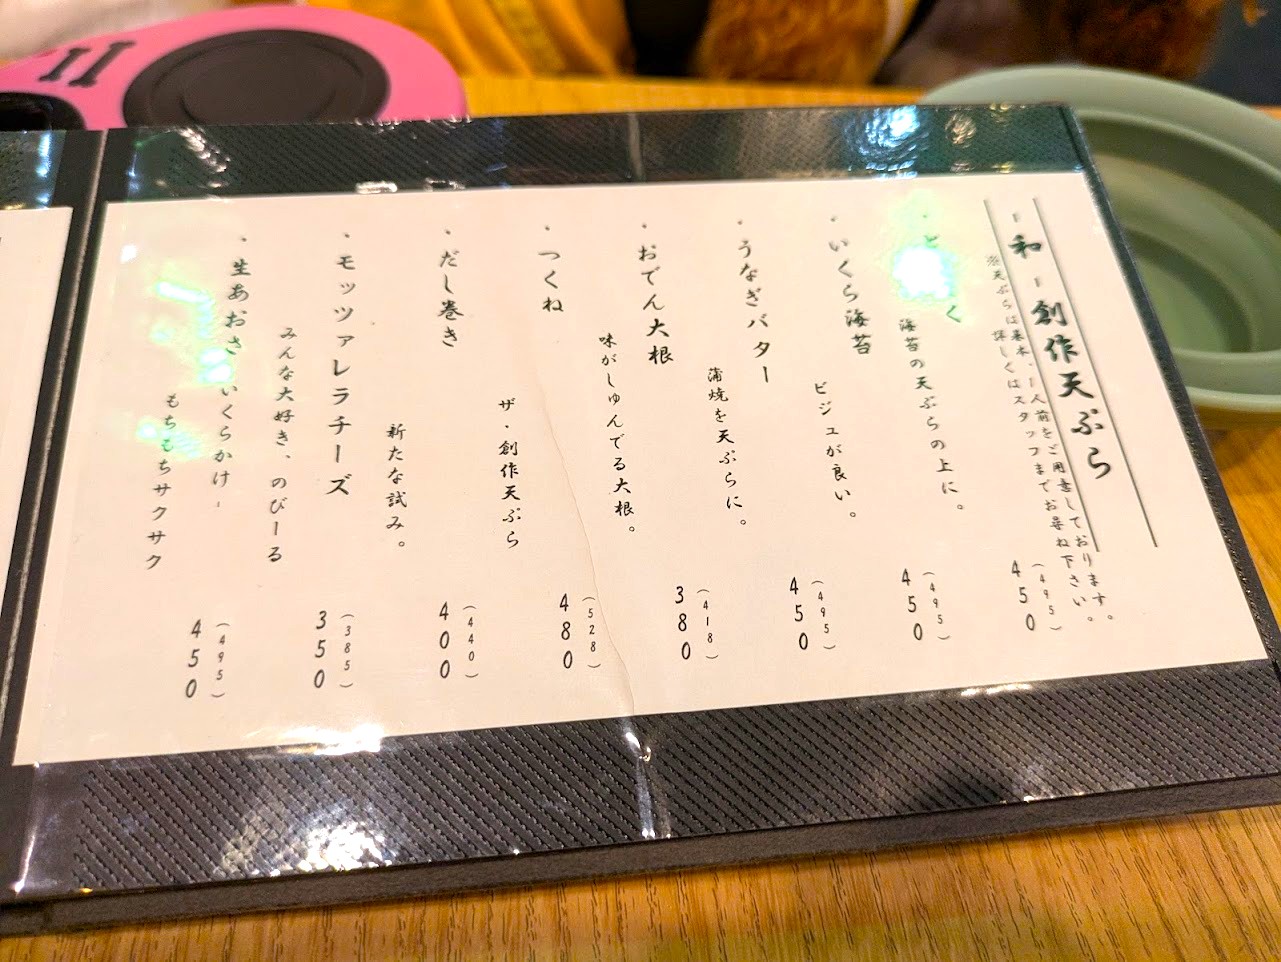 - 和 - 創作天ぷら
※天ぷらは基本、一人前をご用意しております。
詳しくはスタッフまでお尋ね下さい。
海苔の天ぷらの上に。
450
(495)
・いくら海苔
ビジュが良い。
450
(495)
・うなぎバター
蒲焼を天ぷらに。
450
(495)
・おでん大根
味がしゅんでる大根。
380
(418)
・つくね
ザ・創作天ぷら
480
(528)
・だし巻き
新たな試み。
400
(440)
・モッツァレラチーズ
みんな大好き、のびーる
350
(385)
・生あおさ いくらかけ -
もちもちサクサク
450
(495)